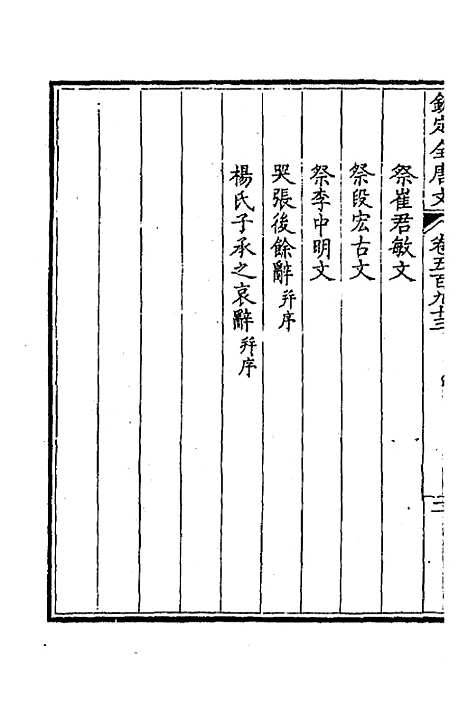 欽定全唐文 卷五百九十三 目 二
祭崔君敏文
祭段宏古文
祭李中明文
哭張後餘辭 并序
楊氏子承之哀辭 并序